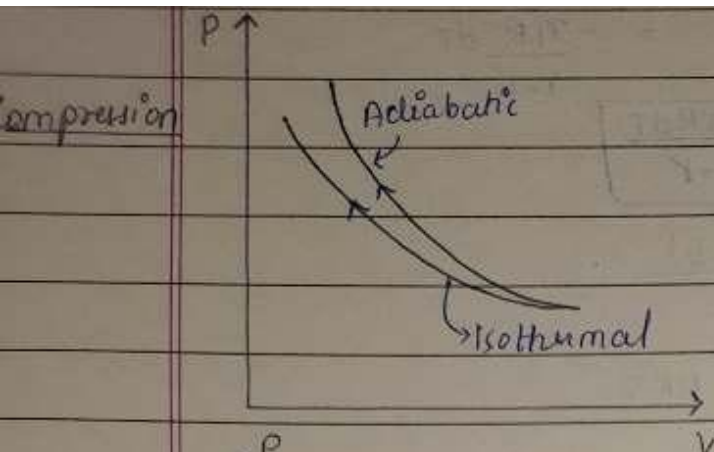 P
Compression
Adiabatic
Isothermal
V
P